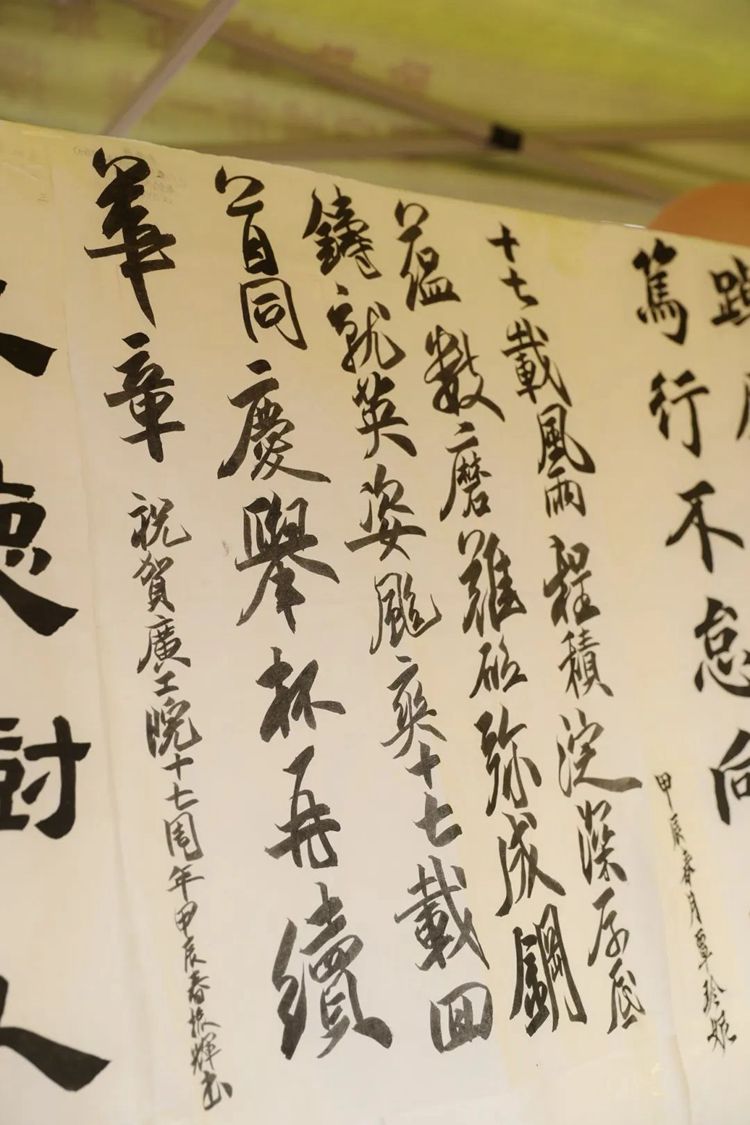 篤行不怠向
甲辰春月覃玲姬
十七載風雨程積淀深厚底
蘊數磨難砥弥成鋼
鑄就英姿颯爽十七載回
首同慶舉杯再續
華章
祝賀廣工晚十七周年甲辰春振輝書